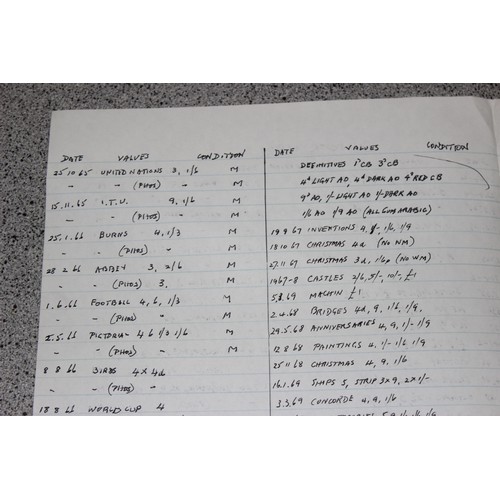 DATE VALUES CONDITION
25.10.65 UNITED NATIONS 3, 1/6 M
" " (PHOS) " M
15.11.65 I.T.U. 9, 1/6 M
" " (PHOS) " M
25.1.66 BURNS 4, 1/3 M
" (PHOS) " M
28.2.66 ABBEY 3, 2/6 M
" (PHOS) 3. M
1.6.66 FOOTBALL 4, 6, 1/3 M
" " (PHOS) " M
2.5.66 PICTORIAL 4 6 1/3 1/6 M
" " (PHOS) " M
8 8 66 BIRDS 4 x 4d
" (PHOS) "
18 8 66 WORLD CUP 4
DATE VALUES CONDITION
DEFINITIVES 1d CB 3d CB
4d LIGHT AO, 4d DARK AO 4d RED CB
9d AO, 1/- LIGHT AO 1/- DARK AO
1/6 AO 1/9 AO (ALL GUM ARABIC)
19 9 67 INVENTIONS 4, 1/-, 1/6, 1/9
18.10 67 CHRISTMAS 4d (NO WM)
27.11 67 CHRISTMAS 3d, 1/6 (NO WM)
1967-8 CASTLES 2/6, 5/-, 10/-, £1
5.3.69 MACHIN £1
2.4.68 BRIDGES 4d, 9, 1/6, 1/9,
29.5.68 ANNIVERSARIES 4, 9, 1/- 1/9
12 8 68 PAINTINGS 4, 1/- 1/6 1/9
25 11 68 CHRISTMAS 4, 9, 1/6
16.1.69 SHIPS 5, STRIP 3 x 9, 2 x 1/-
3.3.69 CONCORDE 4, 9, 1/6